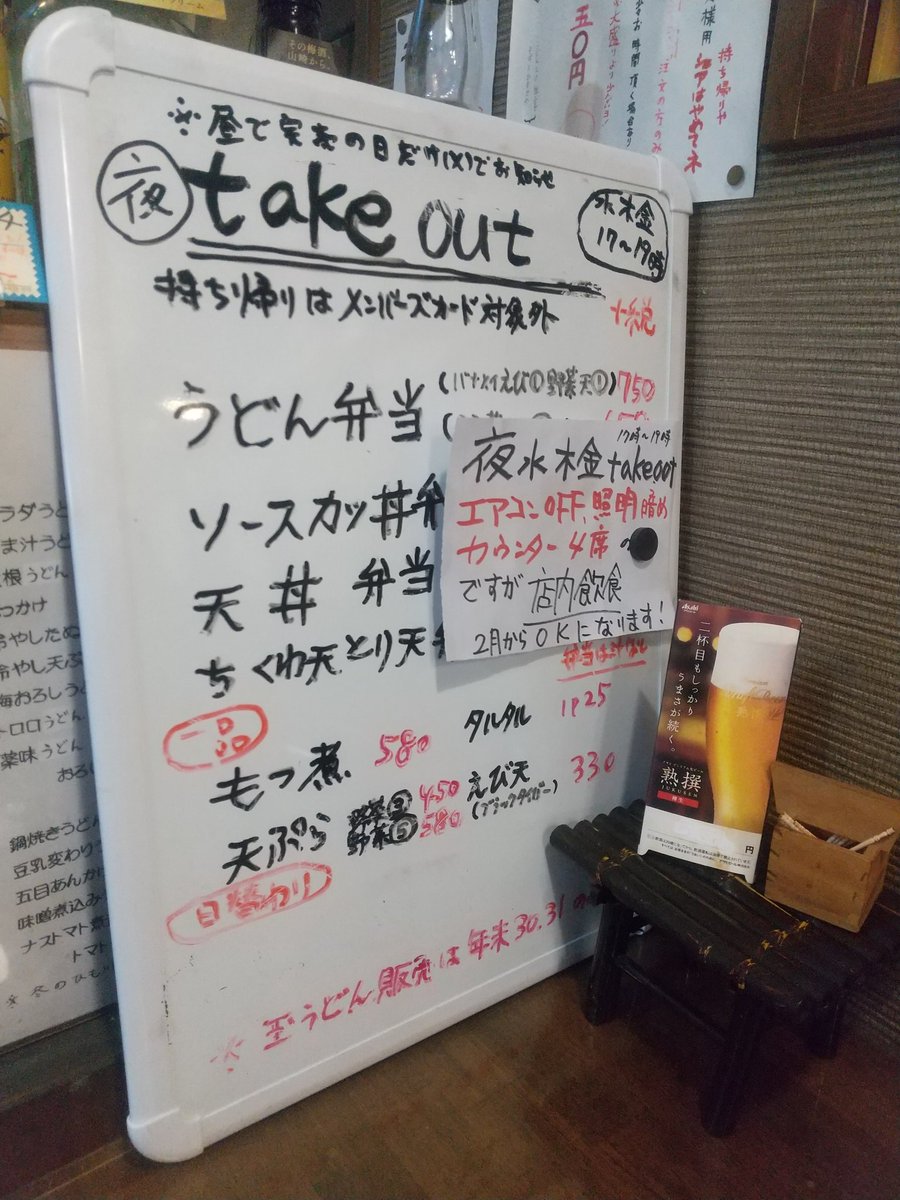 ※昼で完売の日だけ(X)でお知らせ
夜 take out
水木金
17〜19時
持ち帰りはメンバーズカード対象外
+税
うどん弁当 (バナメイえび①野菜天①) 750
ソースカツ丼弁
天丼 弁当
ちくわ天とり天
弁当は汁なし
一品
もつ煮 580
タルタル 1P 25
天ぷら
450
野菜⑤ 580
えび天 330
(ブラックタイガー)
日替わり
※玉うどん販売は年末30.31の
夜水木金takeout
17時〜19時
エアコンOFF、照明暗め
カウンター4席の
ですが店内飲食
2月からOKになります!
その梅酒
山崎から
五〇円
お時間頂く場合あり
持ち帰りや
注文の方のみ
様用
シェアはやめてネ
ラダうど
ま汁うど
根うどん
つかけ
冷やしたぬ
冷やし天ぷ
梅おろしう
トロロうどん
薬味うどん
おろ
鍋焼きうどん
豆乳変わり
五目あんか
味噌煮込み
ナストマト煮
トマト
※冬のひも
Asahi
二杯目もしっかり
うまさが続く。
熟撰
JUKUSEN
樽生
円